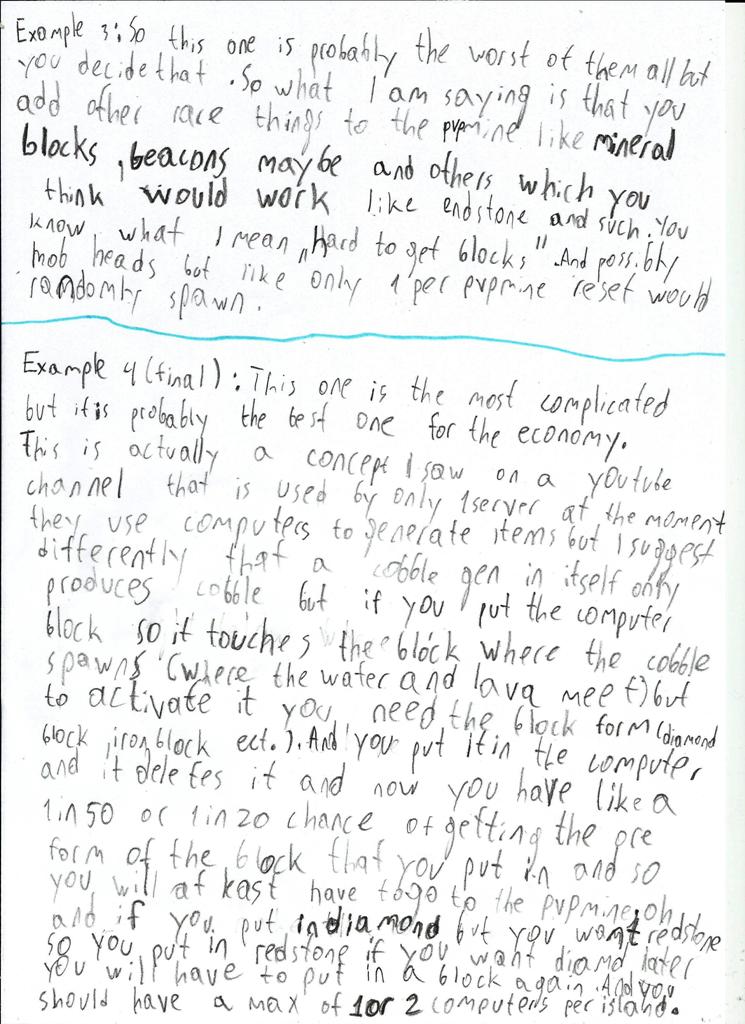 Example 3: So this one is probably the worst of them all but
you decide that .So what I am saying is that you
add other race things to the pvpmine like mineral
blocks ,beacons maybe and others which you
think would work like endstone and such .You
know what I mean „Hard to get blocks" .And possibly
mob heads but like only 1 per pvpmine reset would
randomly spawn.
Example 4 (final): This one is the most complicated
but it is probably the best one for the economy.
This is actually a concept I saw on a youtube
channel that is used by only 1 server at the moment
they use computers to generate items but I suggest
differently that a cobble gen in itself only
produces cobble but if you put the computer
block so it touches the block where the cobble
spawns (where the water and lava meet) but
to activate it you need the block form (diamond
block ,iron block ect.). And you put it in the computer
and it deletes it and now you have like a
1 in 50 or 1 in 20 chance of getting the ore
form of the block that you put in and so
you will at least have to go to the pvpmine, oh
and if you put in diamond but you want redstone
so you put in redstone if you want diamd later
you will have to put in a block again .And you
should have a max of 1 or 2 computers per island.